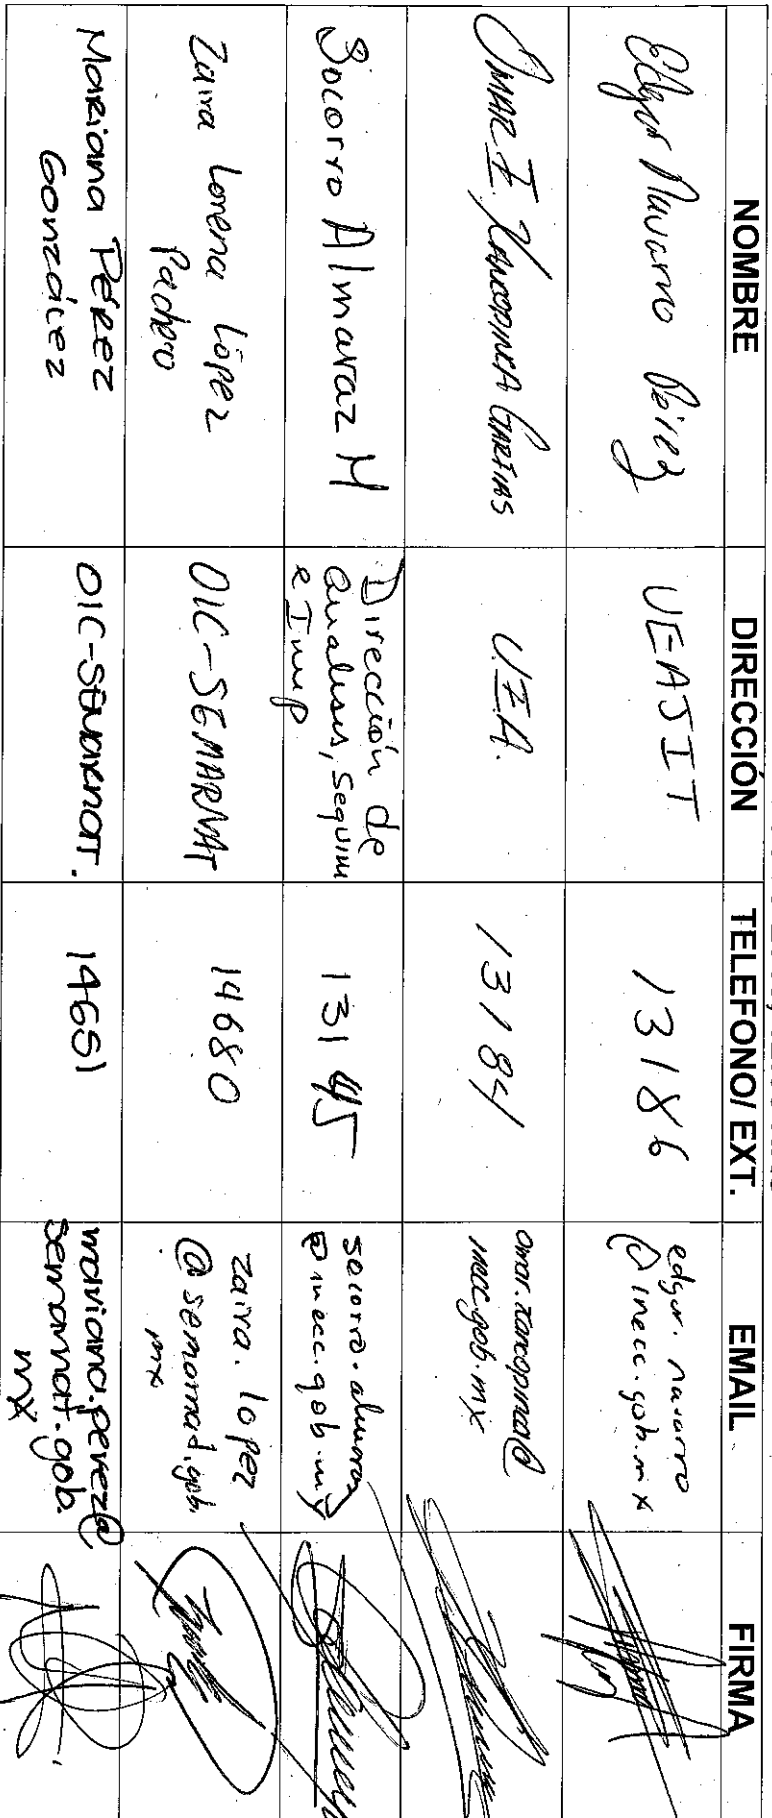 NOMBRE DIRECCIÓN TELEFONO/ EXT. EMAIL FIRMA
Edgar Navarro Pérez UEAJIT 13186 edgar.navarro
@inecc.gob.mx
OMAR I. GARFIAS U.E.A. 13184 omar.zarcopina@
inecc.gob.mx
Socorro Almaraz H Dirección de
analisis, seguim
e Imp 13145 socorro.almaraz
@inecc.gob.mx
Zaira Lorena López
Pacheco OIC-SEMARNAT 14680 zaira.lopez
@semarnat.gob.
mx
Mariana PéREZ
González OIC-SEMARNAT. 14651 mariana.perez@
semarnat.gob.
mx